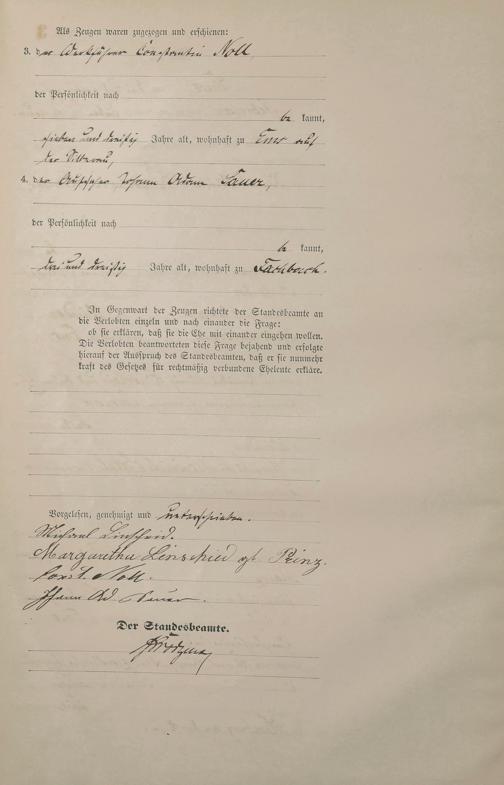 Als Zeugen waren zugezogen und erschienen:
3. der Werkführer Constantin Noll,
der Persönlichkeit nach
be kannt,
sieben und dreißig Jahre alt, wohnhaft zu Ems auf
der Silberau,
4. der Aufseher Johann Adam Sauer,
der Persönlichkeit nach
be kannt,
drei und dreißig Jahre alt, wohnhaft zu Fachbach.
In Gegenwart der Zeugen richtete der Standesbeamte an
die Verlobten einzeln und nach einander die Frage:
ob sie erklären, daß sie die Ehe mit einander eingehen wollen.
Die Verlobten beantworteten diese Frage bejahend und erfolgte
hierauf der Ausspruch des Standesbeamten, daß er sie nunmehr
kraft des Gesetzes für rechtmäßig verbundene Eheleute erkläre.
Vorgelesen, genehmigt und unterschrieben.
Michael Linscheid.
Margaretha Linschied gb Prinz.
Const. Noll.
Johann Ad. Sauer.
Der Standesbeamte.